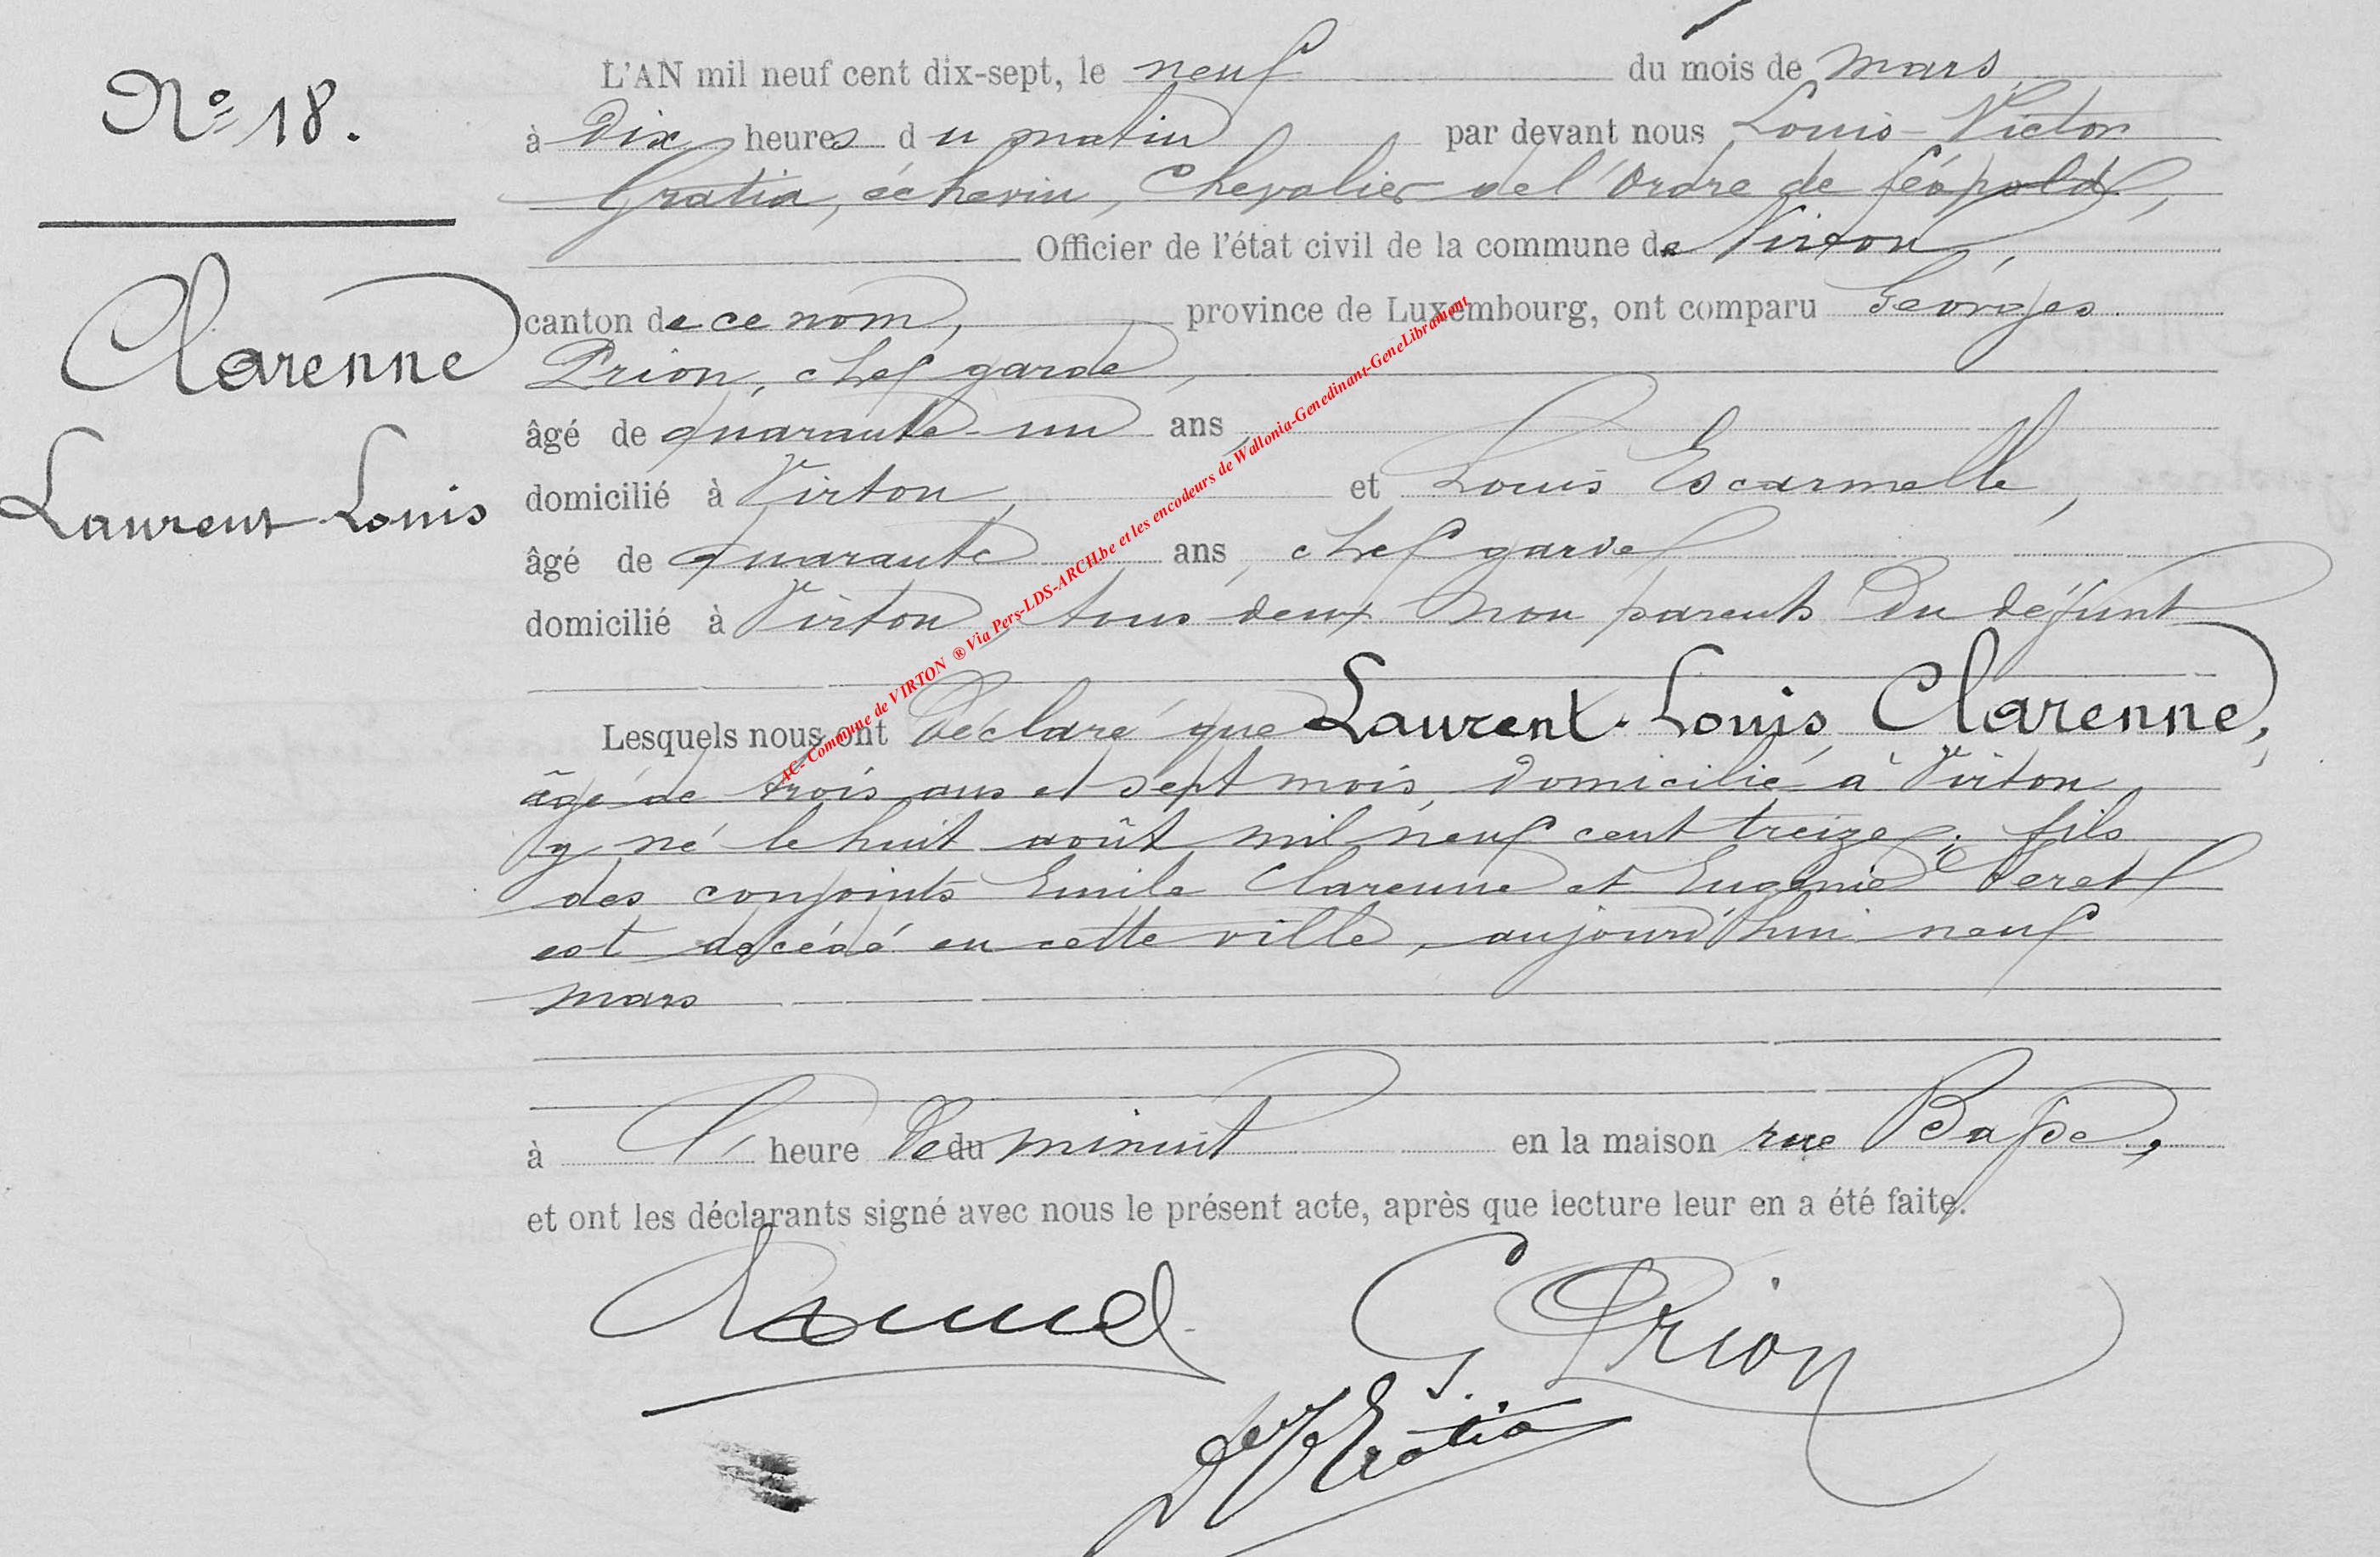 N° 18.
Clarenne
Laurent-Louis
L'AN mil neuf cent dix-sept, le neuf du mois de mars
à dix heures du matin par devant nous Louis-Victor
Gratia, échevin, Chevalier de l'Ordre de Léopold,
Officier de l'état civil de la commune de Virton,
canton de ce nom, province de Luxembourg, ont comparu Georges
Prion, chef garde,
âgé de quarante-un ans,
domicilié à Virton, et Louis Escarmelle,
âgé de quarante ans, chef garde
domicilié à Virton, tous deux non parents du défunt
Lesquels nous ont déclaré que Laurent-Louis Clarenne,
âgé de trois ans et sept mois, domicilié à Virton
y né le huit août mil neuf cent treize; fils
des conjoints Emile Clarenne et Eugénie
est décédé en cette ville, aujourd'hui neuf
mars
à l' heure de du minuit en la maison rue Basse,
et ont les déclarants signé avec nous le présent acte, après que lecture leur en a été faite.
G. Prion
LVGratia
AC- Commune de VIRTON ® Via Pers-LDS-ARCH.be et les encodeurs de Wallonia-Genedinant-GeneLibramont